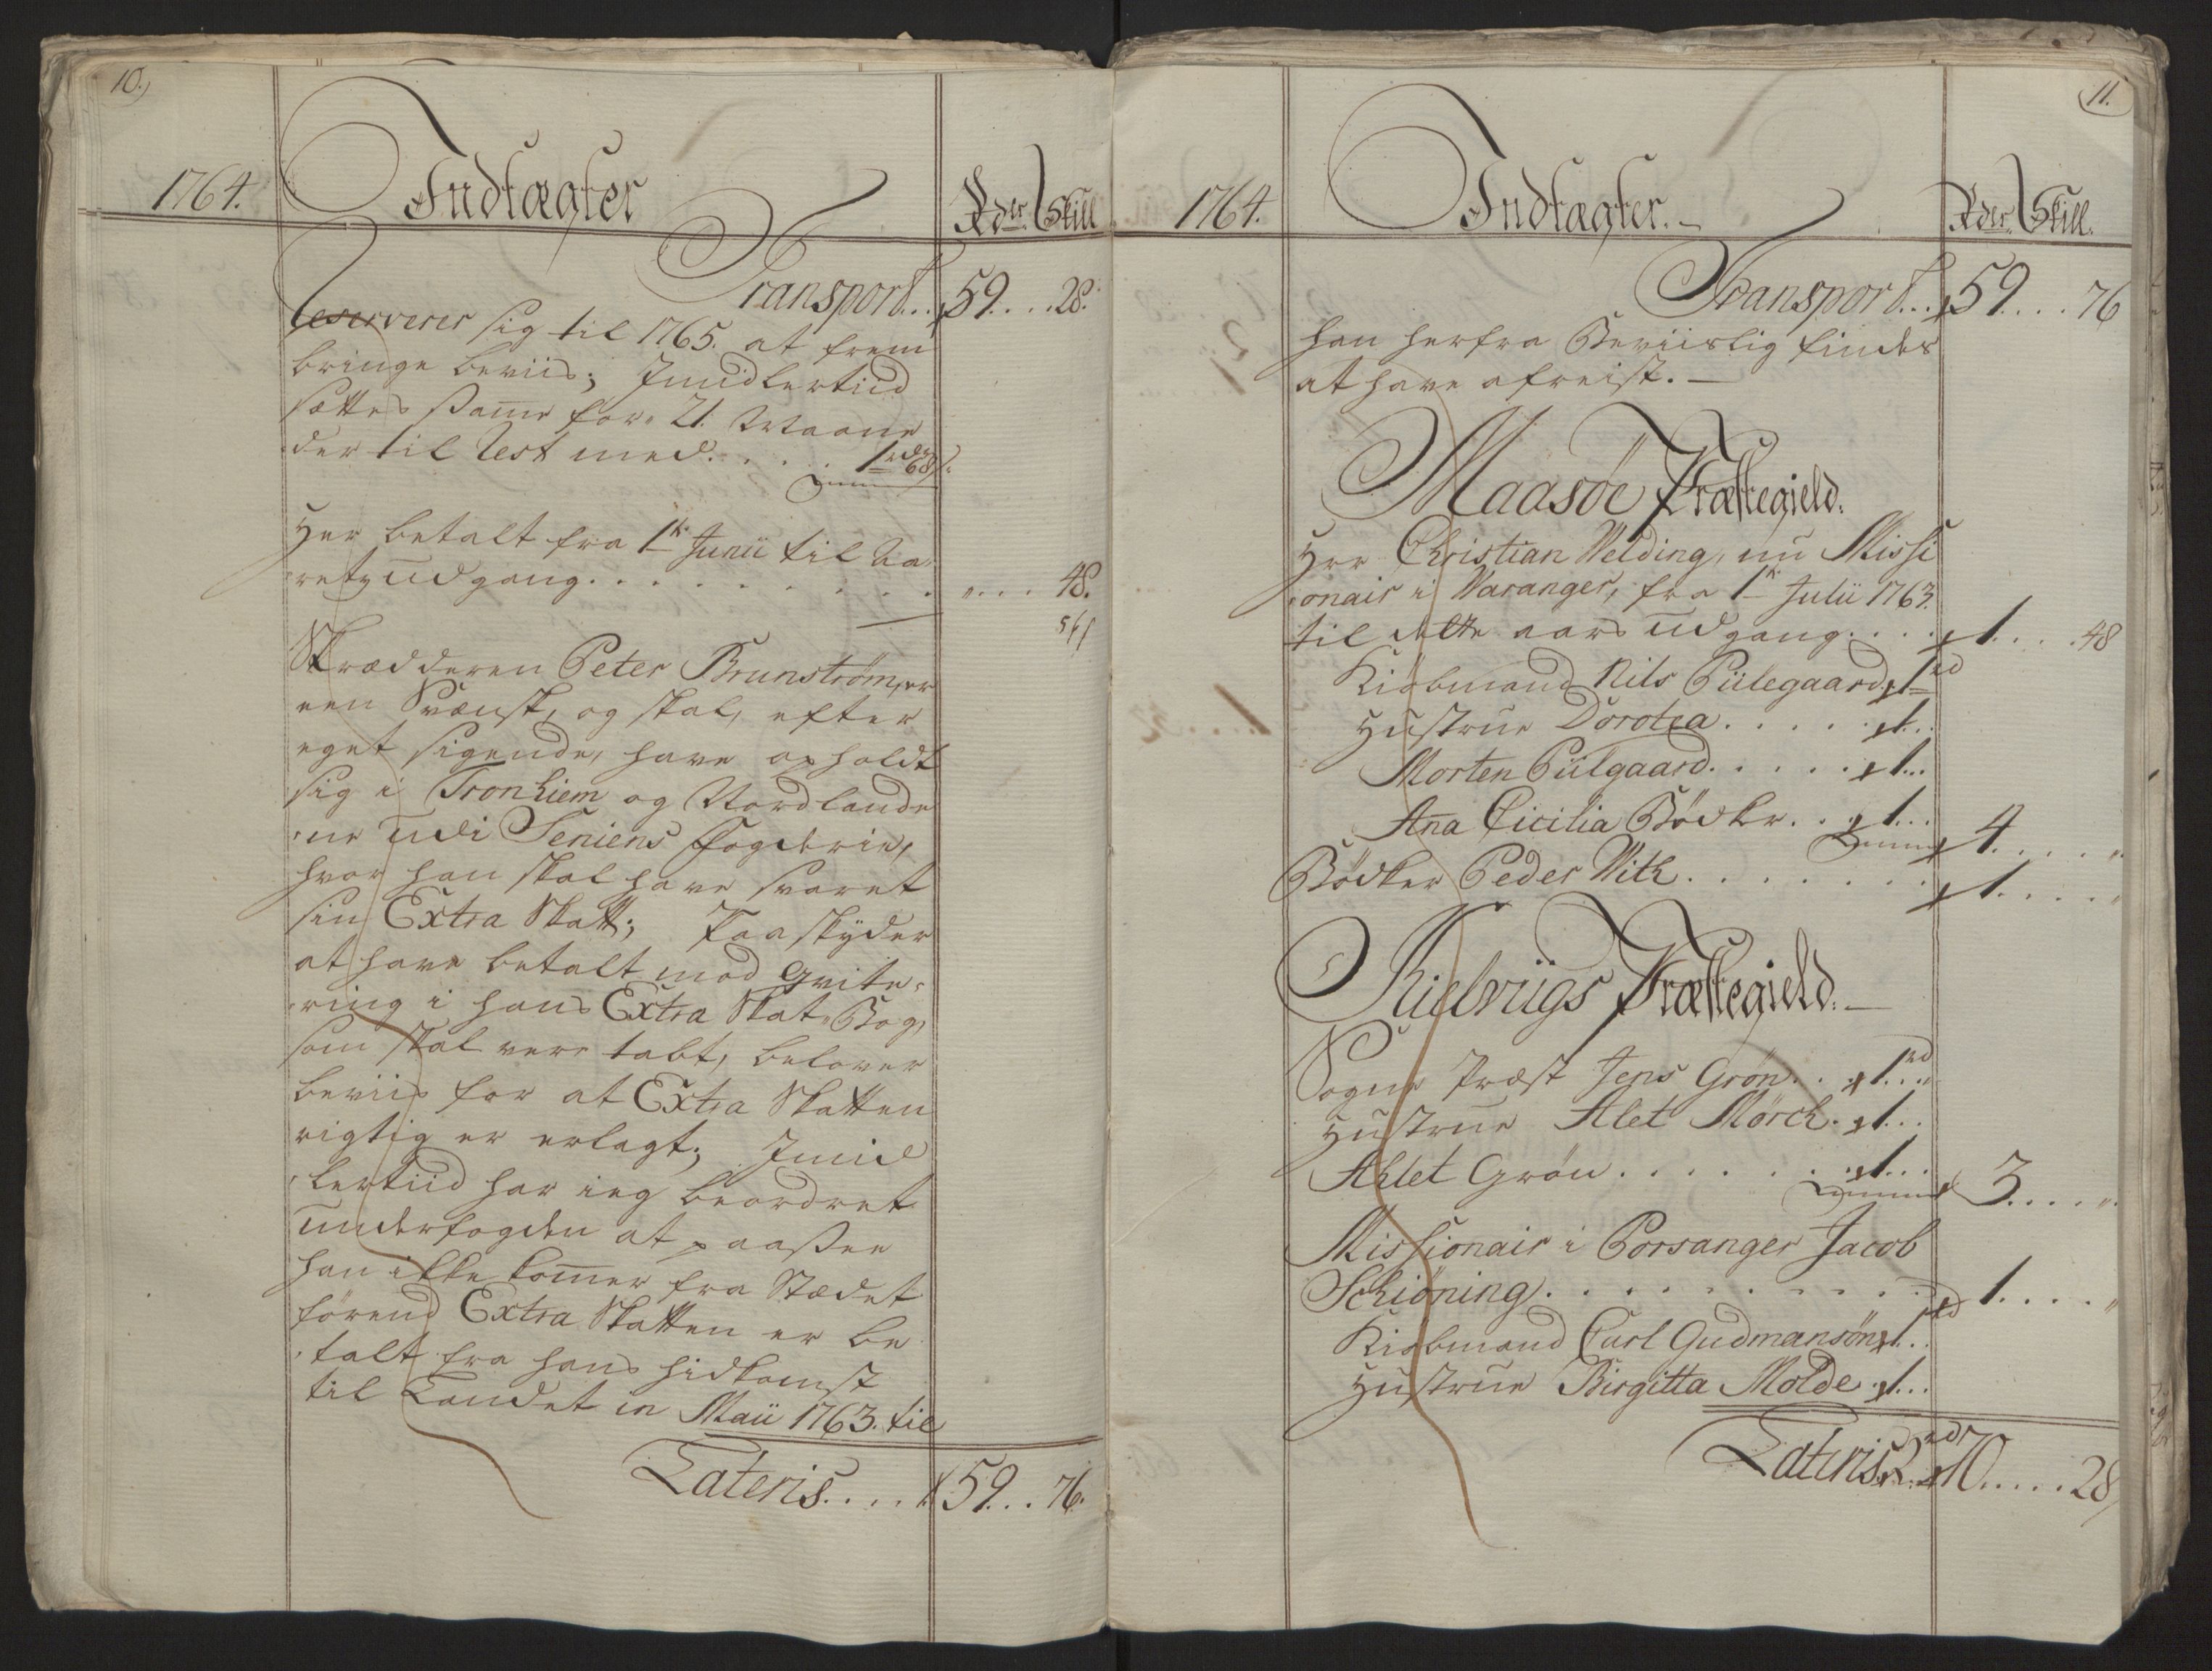 10.)
1764. Indtægter Rdr Skill
Transport... 59... 28.
Reserverer sig til 1765. at frem
bringe beviis; Imidlertiid
sættes samme for 21. Maane
der til Rest med..... 1rdr 68s:
Her betalt fra 1te Junii til Aa
rets udgang......... "... 48.
Skrædderen Peter Brunstrøm, er
een Svænsk, og skal, efter
eget sigende, have opholdt
sig i Tronhiem og Nordlande
ne udi Seniens Fogderie,
hvor han skal have svaret
sin Extra Skatt; Paaskyder
at have betalt mod Qvite-
ring i hans Extra Skat-Bog,
som skal være tabt, belover
beviis for at Extra Skatten
rigtig er erlagt; Imid
lertiid har ieg beordret
underfogden at paasee
han ikke kommer fra Stædet
førend Extra Skatten er be
talt fra hans hidkomst
til Landet in Maii 1763. til
Lateris.... 59... 76.
11.
1764. Indtægter. Rdr Skill.
Transport... 59.... 76
han herfra Beviislig findes
at have afreist.
Maasøe Præstegield.
Hrr Christian Welding, nu Missi
onair i Waranger, fra 1te Julii 1763.
til dette aars udgang.... 1.... 48
Kiøbmand Nils Piilegaard 1rd
Hustrue Dorotea...... 1...
Morten Piilgaard...... 1...
Ana Cicilia Bødker... 1... 4.... "
Bødker Peder With........ 1.... "
Kielviigs Præstegield.
Sogne Præst Jens Grøn.. 1rd..
Hustrue Alet Mørch. 1...
Ahlet Grøn....... 1... 3.... "
Missionair i Porsanger Jacob
Schiøning......... 1.... "
Kiøbmand Carl Gudmansøn 1rd..
Hustrue Birgitta Molde. 1...
Lateris 2rdr 70..... 28